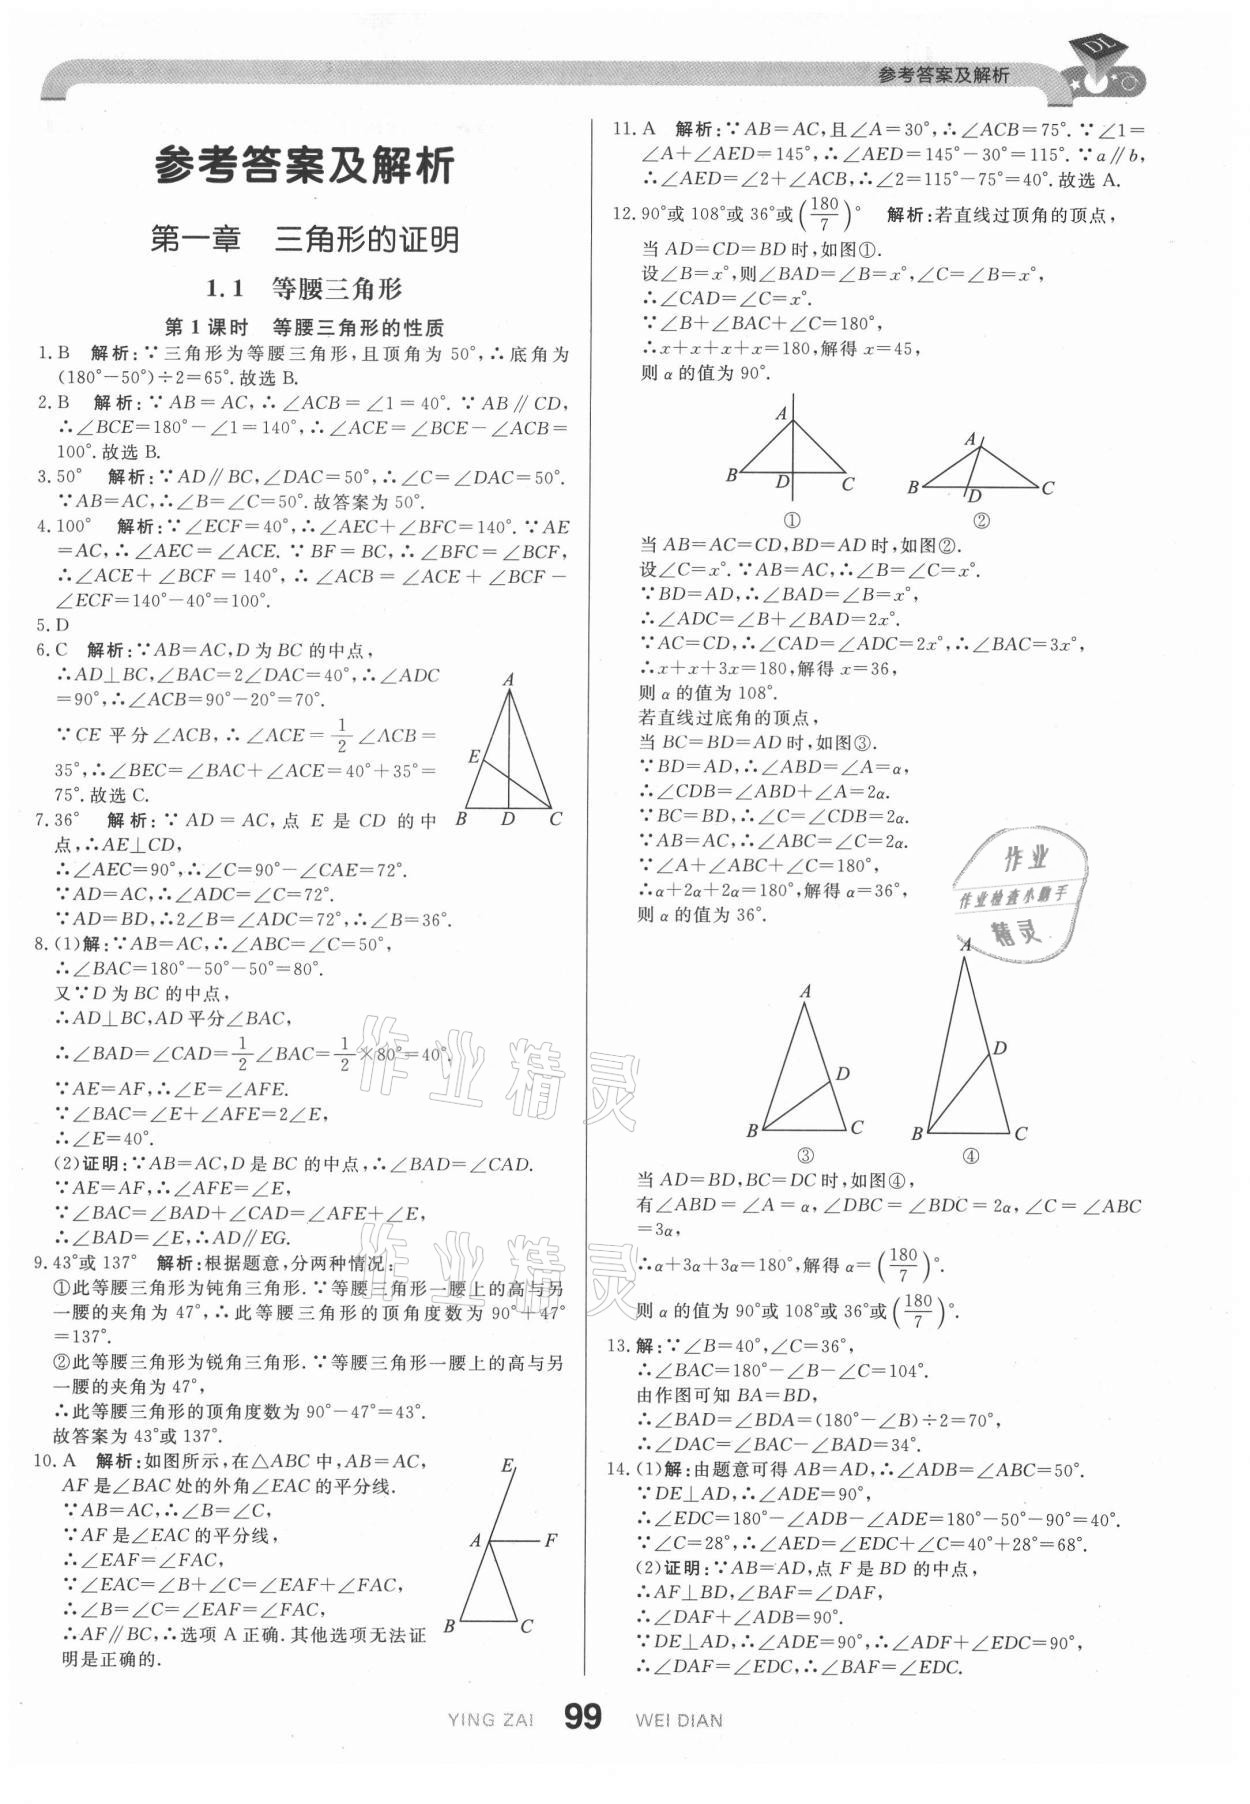 DL
参考答案及解析
参考答案及解析
第一章 三角形的证明
1.1 等腰三角形
第1课时 等腰三角形的性质
1.B 解析:∵三角形为等腰三角形,且顶角为50°,∴底角为
(180°-50°)÷2=65°.故选B.
2.B 解析:∵AB=AC,∴∠ACB=∠1=40°.∵AB∥CD,
∴∠BCE=180°-∠1=140°,∴∠ACE=∠BCE-∠ACB=
100°.故选B.
3.50° 解析:∵AD∥BC,∠DAC=50°,∴∠C=∠DAC=50°.
∵AB=AC,∴∠B=∠C=50°.故答案为50°.
4.100° 解析:∵∠ECF=40°,∴∠AEC+∠BFC=140°.∵AE
=AC,∴∠AEC=∠ACE.∵BF=BC,∴∠BFC=∠BCF,
∴∠ACE+∠BCF=140°,∴∠ACB=∠ACE+∠BCF-
∠ECF=140°-40°=100°.
5.D
6.C 解析:∵AB=AC,D为BC的中点,
∴AD⊥BC,∠BAC=2∠DAC=40°,∴∠ADC
=90°,∴∠ACB=90°-20°=70°.
∵CE平分∠ACB,∴∠ACE=1/2∠ACB=
35°,∴∠BEC=∠BAC+∠ACE=40°+35°=
75°.故选C.
A
E
B D C
7.36° 解析:∵AD=AC,点E是CD的中
点,∴AE⊥CD,
∴∠AEC=90°,∴∠C=90°-∠CAE=72°.
∵AD=AC,∴∠ADC=∠C=72°.
∵AD=BD,∴2∠B=∠ADC=72°,∴∠B=36°.
8.(1)解:∵AB=AC,∴∠ABC=∠C=50°,
∴∠BAC=180°-50°-50°=80°.
又∵D为BC的中点,
∴AD⊥BC,AD平分∠BAC,
∴∠BAD=∠CAD=1/2∠BAC=1/2×80°=40°,
∵AE=AF,∴∠E=∠AFE.
∵∠BAC=∠E+∠AFE=2∠E,
∴∠E=40°.
(2)证明:∵AB=AC,D是BC的中点,∴∠BAD=∠CAD.
∵AE=AF,∴∠AFE=∠E,
∵∠BAC=∠BAD+∠CAD=∠AFE+∠E,
∴∠BAD=∠E,∴AD∥EG.
9.43°或137° 解析:根据题意,分两种情况:
①此等腰三角形为钝角三角形.∵等腰三角形一腰上的高与另
一腰的夹角为47°,∴此等腰三角形的顶角度数为90°+47°
=137°.
②此等腰三角形为锐角三角形.∵等腰三角形一腰上的高与另
一腰的夹角为47°,
∴此等腰三角形的顶角度数为90°-47°=43°.
故答案为43°或137°.
10.A 解析:如图所示,在△ABC中,AB=AC,
AF是∠BAC处的外角∠EAC的平分线.
∵AB=AC,∴∠B=∠C,
∵AF是∠EAC的平分线,
∴∠EAF=∠FAC,
∵∠EAC=∠B+∠C=∠EAF+∠FAC,
∴∠B=∠C=∠EAF=∠FAC,
∴AF∥BC,∴选项A正确.其他选项无法证
明是正确的.
E
A F
B C
11.A 解析:∵AB=AC,且∠A=30°,∴∠ACB=75°.∵∠1=
∠A+∠AED=145°,∴∠AED=145°-30°=115°.∵a∥b,
∴∠AED=∠2+∠ACB,∴∠2=115°-75°=40°.故选A.
12.90°或108°或36°或(180/7)° 解析:若直线过顶角的顶点,
当AD=CD=BD时,如图①.
设∠B=x°,则∠BAD=∠B=x°,∠C=∠B=x°,
∴∠CAD=∠C=x°.
∵∠B+∠BAC+∠C=180°,
∴x+x+x+x=180,解得x=45,
则α的值为90°.
A
B D C
①
A
B D C
②
当AB=AC=CD,BD=AD时,如图②.
设∠C=x°.∵AB=AC,∴∠B=∠C=x°.
∵BD=AD,∴∠BAD=∠B=x°,
∴∠ADC=∠B+∠BAD=2x°.
∵AC=CD,∴∠CAD=∠ADC=2x°,∴∠BAC=3x°,
∴x+x+3x=180,解得x=36,
则α的值为108°.
若直线过底角的顶点,
当BC=BD=AD时,如图③.
∵BD=AD,∴∠ABD=∠A=α,
∴∠CDB=∠ABD+∠A=2α.
∵BC=BD,∴∠C=∠CDB=2α.
∵AB=AC,∴∠ABC=∠C=2α.
∵∠A+∠ABC+∠C=180°,
∴α+2α+2α=180°,解得α=36°,
则α的值为36°.
作业
作业检查小助手
精灵
A
D
B C
③
A
D
B C
④
当AD=BD,BC=DC时,如图④,
有∠ABD=∠A=α,∠DBC=∠BDC=2α,∠C=∠ABC
=3α,
∴α+3α+3α=180°,解得α=(180/7)°.
则α的值为90°或108°或36°或(180/7)°.
13.解:∵∠B=40°,∠C=36°,
∴∠BAC=180°-∠B-∠C=104°.
由作图可知BA=BD,
∴∠BAD=∠BDA=(180°-∠B)÷2=70°,
∴∠DAC=∠BAC-∠BAD=34°.
14.(1)解:由题意可得AB=AD,∴∠ADB=∠ABC=50°.
∵DE⊥AD,∴∠ADE=90°,
∴∠EDC=180°-∠ADB-∠ADE=180°-50°-90°=40°.
∵∠C=28°,∴∠AED=∠EDC+∠C=40°+28°=68°.
(2)证明:∵AB=AD,点F是BD的中点,
∴AF⊥BD,∠BAF=∠DAF,
∴∠DAF+∠ADB=90°.
∵DE⊥AD,∴∠ADE=90°,∴∠ADF+∠EDC=90°,
∴∠DAF=∠EDC,∴∠BAF=∠EDC.
作业精灵
作业精灵
YING ZAI 99 WEI DIAN